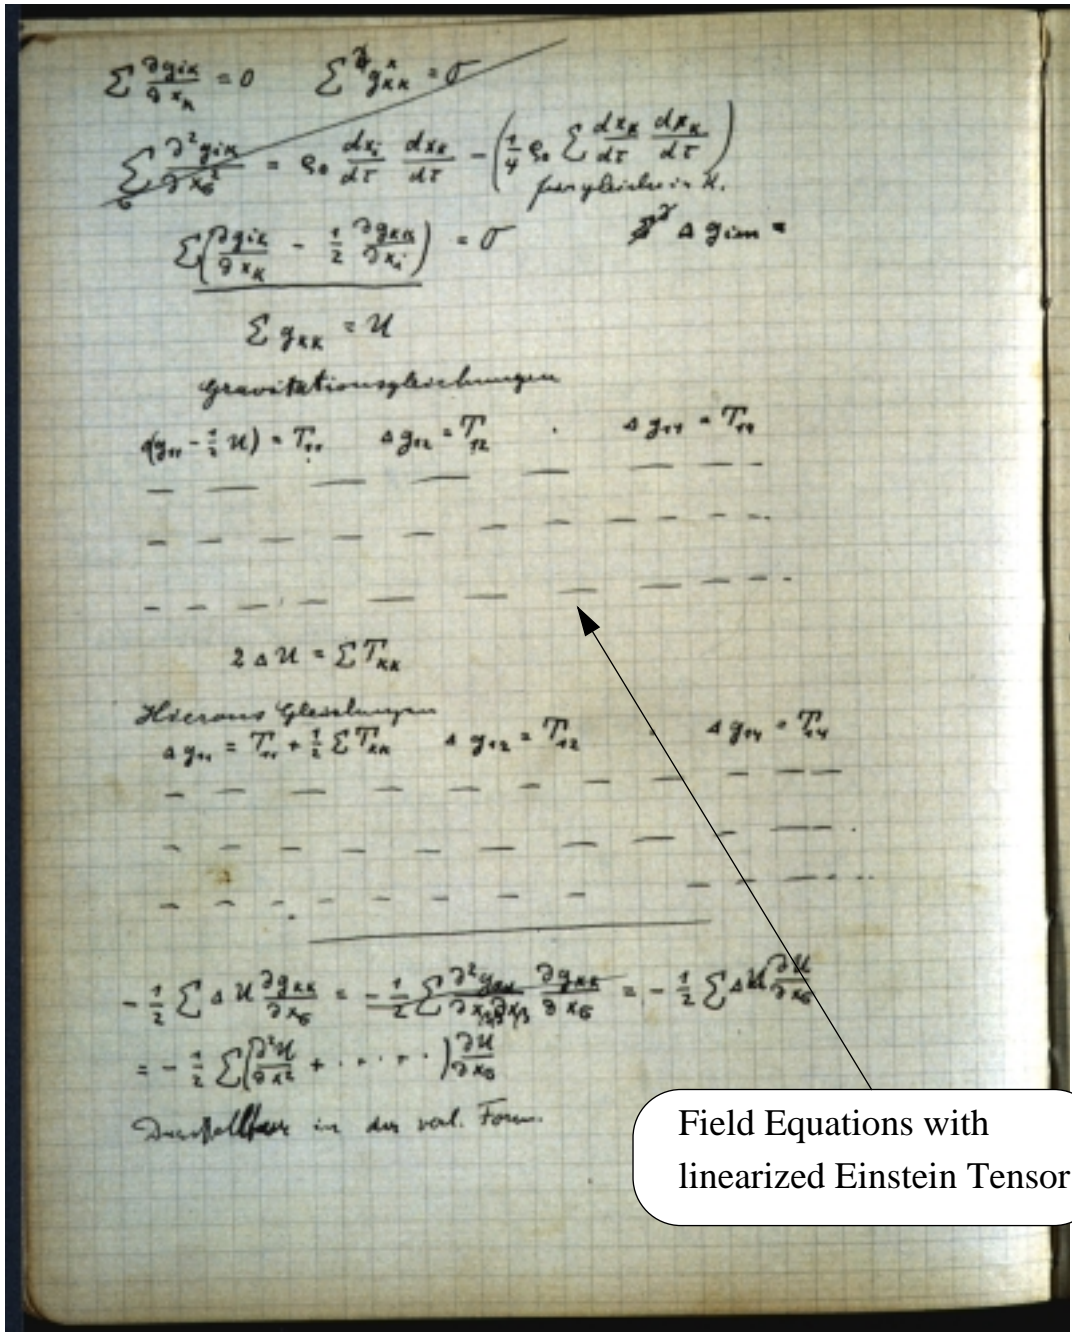 ∑ ∂g_iκ/∂x_κ = 0 ∑ g_κκ = 0
∑_σ ∂²g_iκ/∂x_σ² = ρ₀ dx_i/dτ dx_κ/dτ − (1/4 ρ₀ ∑ dx_κ/dτ dx_κ/dτ)
∑(∂g_iκ/∂x_κ − 1/2 ∂g_κκ/∂x_i) = 0 Δ g_im =
∑ g_κκ = U
Gravitationsgleichungen
Δ(g₁₁ − 1/2 U) = T₁₁ Δ g₁₂ = T₁₂ . Δ g₁₄ = T₁₄
— — — — — — —
— — — — — — — — — —
— — — — — — — — — —
2 Δ U = ∑ T_κκ
Hieraus Gleichungen
Δ g₁₁ = T₁₁ + 1/2 ∑ T_κκ Δ g₁₂ = T₁₂ . Δ g₁₄ = T₁₄
— — — — — — — — — —
— — — — — — — — — —
— — — — — — — — — —
− 1/2 ∑ Δ U ∂g_κκ/∂x_σ = − 1/2 ∑ ∂²g_κκ/∂x_β∂x_β ∂g_κκ/∂x_σ = − 1/2 ∑ Δ U ∂U/∂x_σ
= − 1/2 ∑(∂²U/∂x² + · · · · ·) ∂U/∂x_σ
Darstellbar in der verl. Form.
Field Equations with
linearized Einstein Tensor